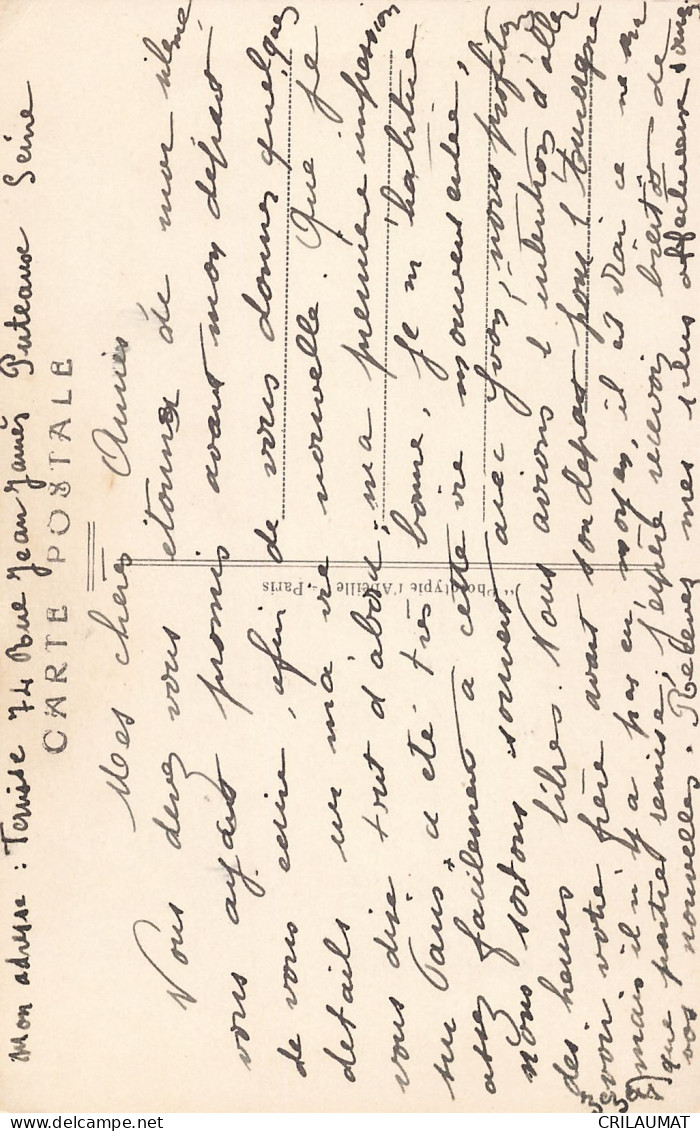 Mon adresse : Ternisse 74 Rue Jean Jaurès Puteaux Seine
CARTE POSTALE
"Phototypie l'Abeille", Paris
Mes chères Amies
Vous devez vous étonner de mon silence
vous ayant promis avant mon départ
de vous écrire, afin de vous donner quelques
détails sur ma vie nouvelle. Que je
vous dise tout d'abord, ma première impression
sur Paris a été très bonne, je m'habitue
assez facilement à cette vie mouvementée,
nous sortons souvent avec Yvon, nous profitons
des heures libres. Nous avions l'intention d'aller
voir votre frère avant son départ pour
mais il n'y a pas eu moyen, il est vrai ce ne
que partie remise, j'espère recevoir bientôt de
vos nouvelles. Recevez mes plus affectueux
CRILAUMAT